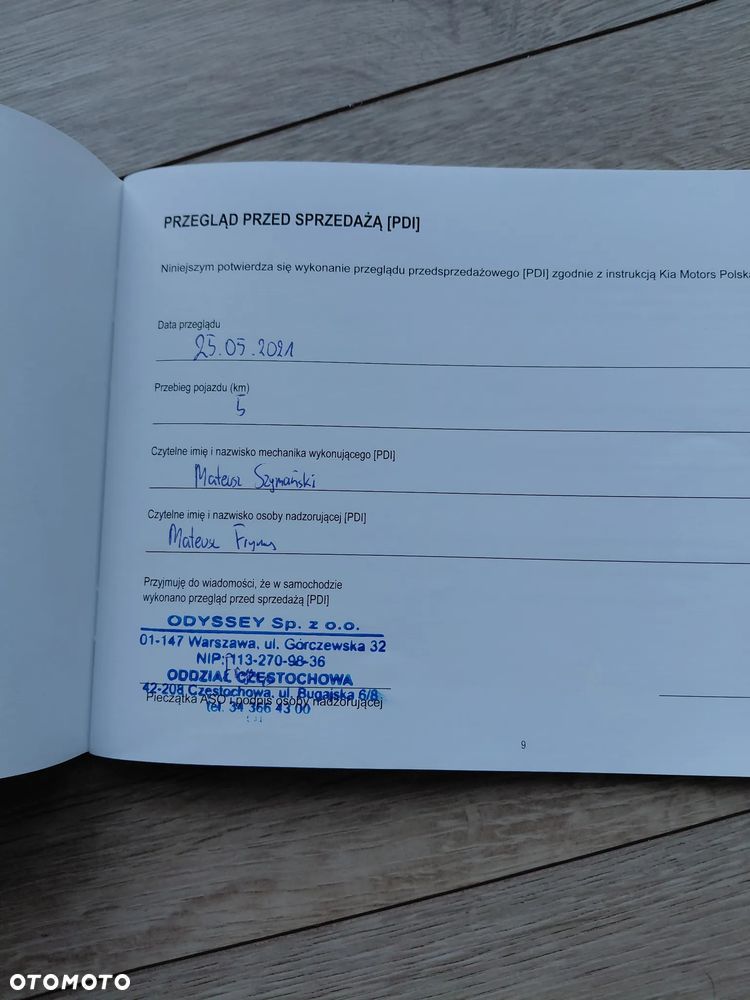 PRZEGLĄD PRZED SPRZEDAŻĄ [PDI]
Niniejszym potwierdza się wykonanie przeglądu przedsprzedażowego [PDI] zgodnie z instrukcją Kia Motors Polsk
Data przeglądu
25.05.2021
Przebieg pojazdu (km)
5
Czytelne imię i nazwisko mechanika wykonującego [PDI]
Mateusz Szymański
Czytelne imię i nazwisko osoby nadzorującej [PDI]
Mateusz
Przyjmuję do wiadomości, że w samochodzie
wykonano przegląd przed sprzedażą [PDI]
ODYSSEY Sp. z o.o.
01-147 Warszawa, ul. Górczewska 32
NIP: 113-270-98-36
ODDZIAŁ CZĘSTOCHOWA
42-208 Częstochowa, ul. Bugajska 6/8
Pieczątka ASO i podpis osoby nadzorującej
tel. 34 366 43 00
9
OTOMOTO